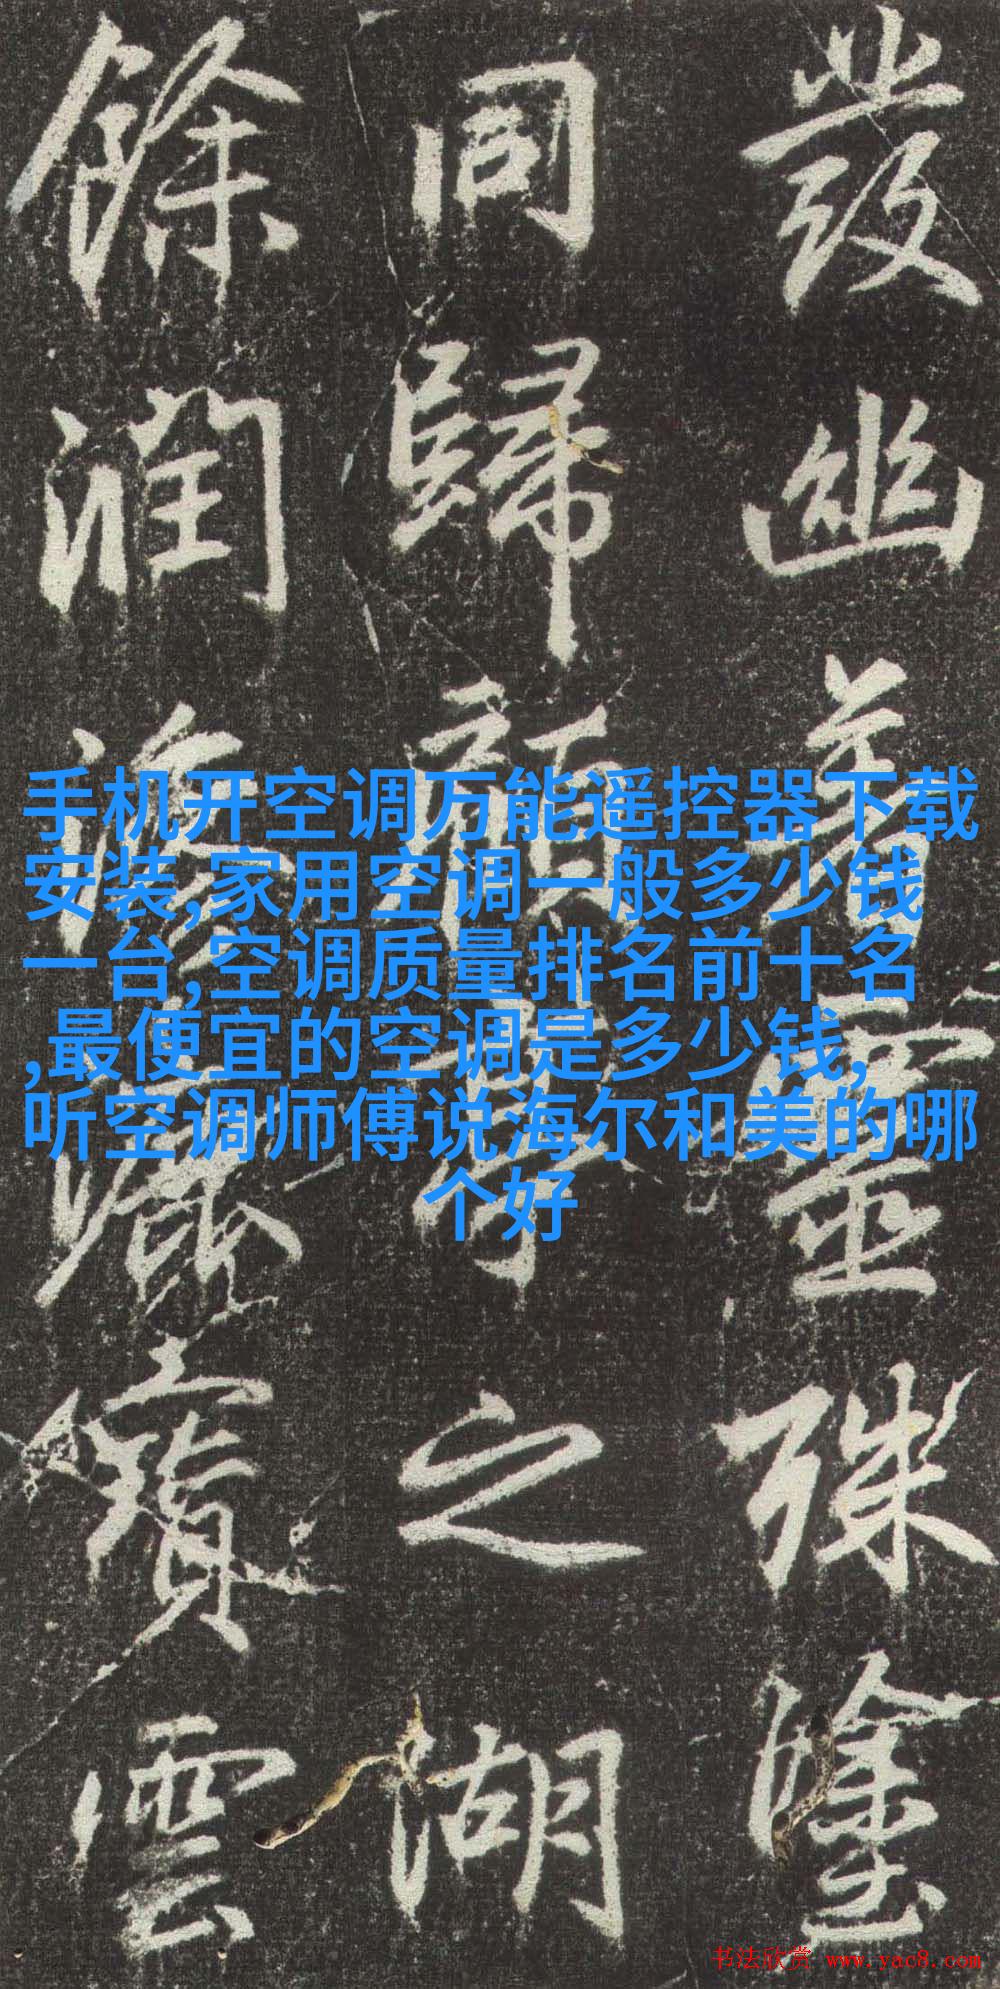 發幽着靈殊
同歸之湖
餘润雲
手机开空调万能遥控器下载
安装,家用空调一般多少钱
一台,空调质量排名前十名
,最便宜的空调是多少钱,
听空调师傅说海尔和美的哪
个好
书法欣赏 www.yac8.com